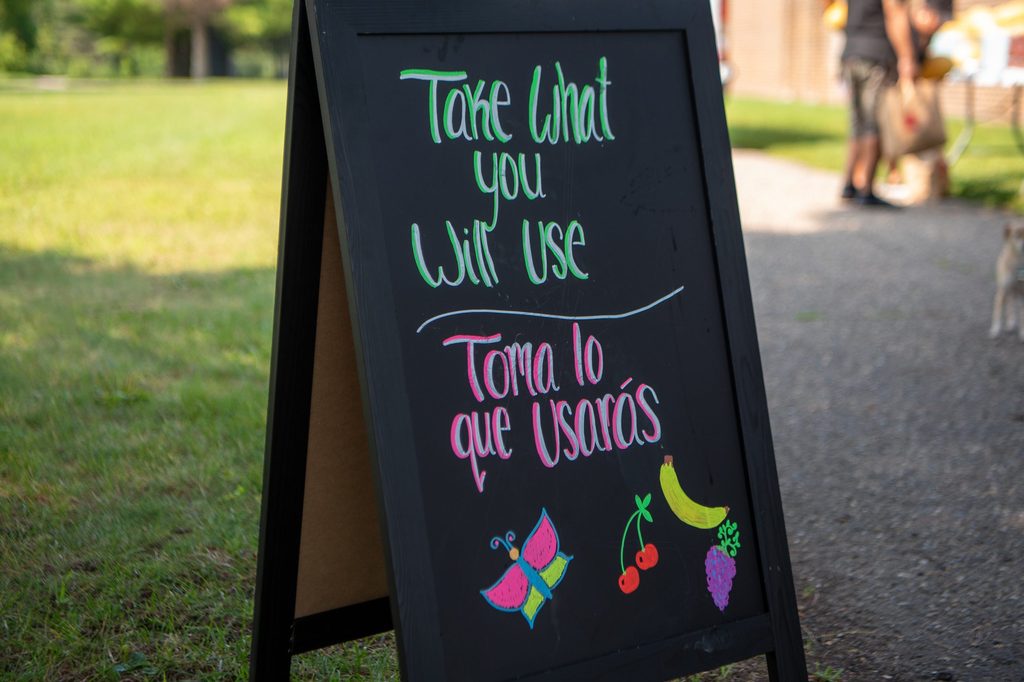 Take What
you
Will Use
Toma lo
que Usarás